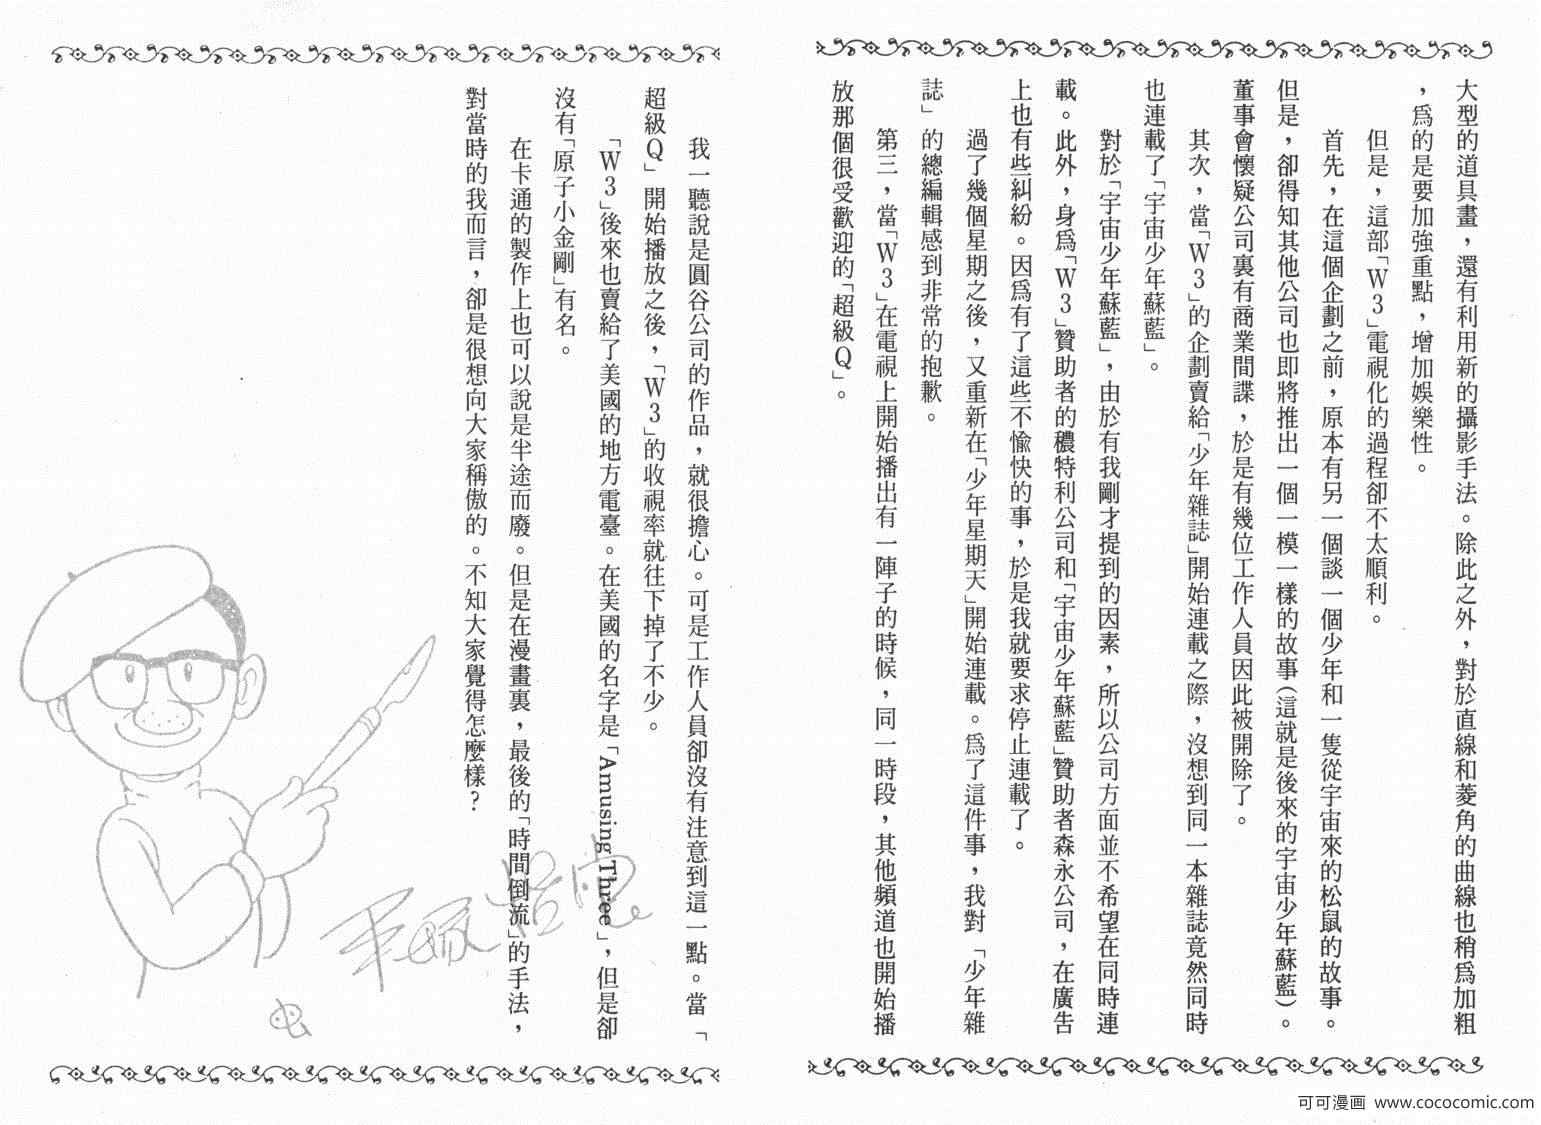 大型的道具畫，還有利用新的攝影手法。除此之外，對於直線和菱角的曲線也稍爲加粗
，爲的是要加強重點，增加娛樂性。
但是，這部「W3」電視化的過程卻不太順利。
首先，在這個企劃之前，原本有另一個談一個少年和一隻從宇宙來的松鼠的故事。
但是，卻得知其他公司也即將推出一個一模一樣的故事（這就是後來的宇宙少年蘇藍）。
董事會懷疑公司裏有商業間諜，於是有幾位工作人員因此被開除了。
其次，當「W3」的企劃賣給「少年雜誌」開始連載之際，沒想到同一本雜誌竟然同時
也連載了「宇宙少年蘇藍」。
對於「宇宙少年蘇藍」，由於有我剛才提到的因素，所以公司方面並不希望在同時連
載。此外，身爲「W3」贊助者的穠特利公司和「宇宙少年蘇藍」贊助者森永公司，在廣告
上也有些糾紛。因爲有了這些不愉快的事，於是我就要求停止連載了。
過了幾個星期之後，又重新在「少年星期天」開始連載。爲了這件事，我對「少年雜
誌」的總編輯感到非常的抱歉。
第三，當「W3」在電視上開始播出有一陣子的時候，同一時段，其他頻道也開始播
放那個很受歡迎的「超級Q」。
我一聽說是圓谷公司的作品，就很擔心。可是工作人員卻沒有注意到這一點。當「
超級Q」開始播放之後，「W3」的收視率就往下掉了不少。
「W3」後來也賣給了美國的地方電臺。在美國的名字是「Amusing Three」，但是卻
沒有「原子小金剛」有名。
在卡通的製作上也可以說是半途而廢。但是在漫畫裏，最後的「時間倒流」的手法，
對當時的我而言，卻是很想向大家稱傲的。不知大家覺得怎麼樣？
手塚治虫
虫
可可漫画 www.cococomic.com